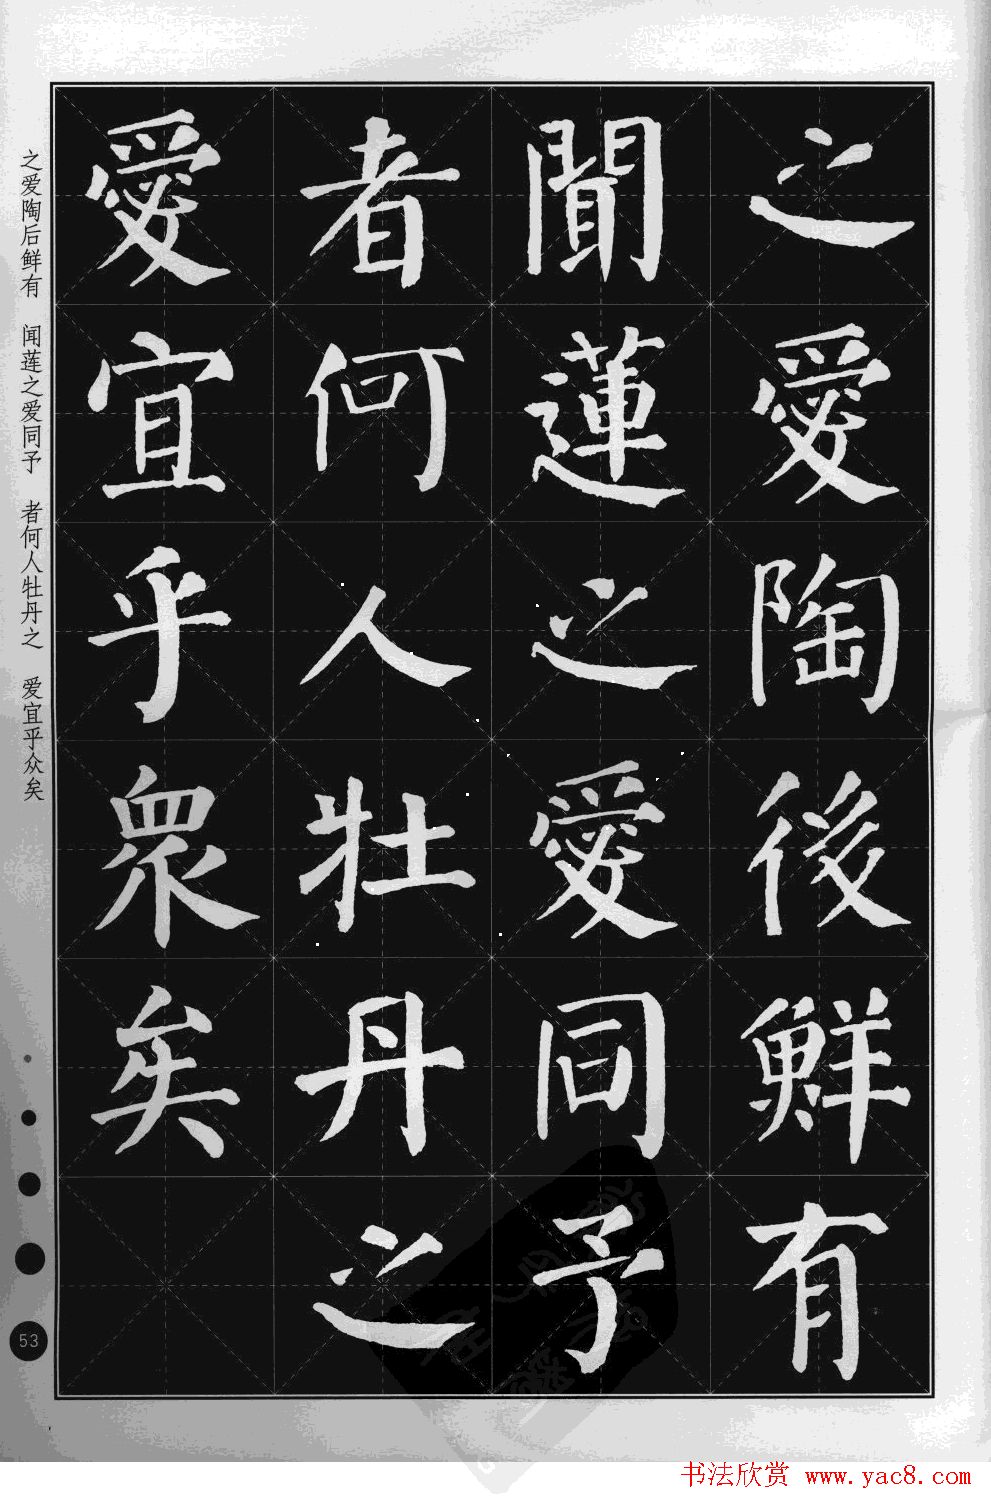 之愛陶後鮮有
聞蓮之愛同予
者何人牡丹之
愛宜乎衆矣
之爱陶后鲜有 闻莲之爱同予 者何人牡丹之 爱宜乎众矣
53
书法欣赏 www.yac8.com